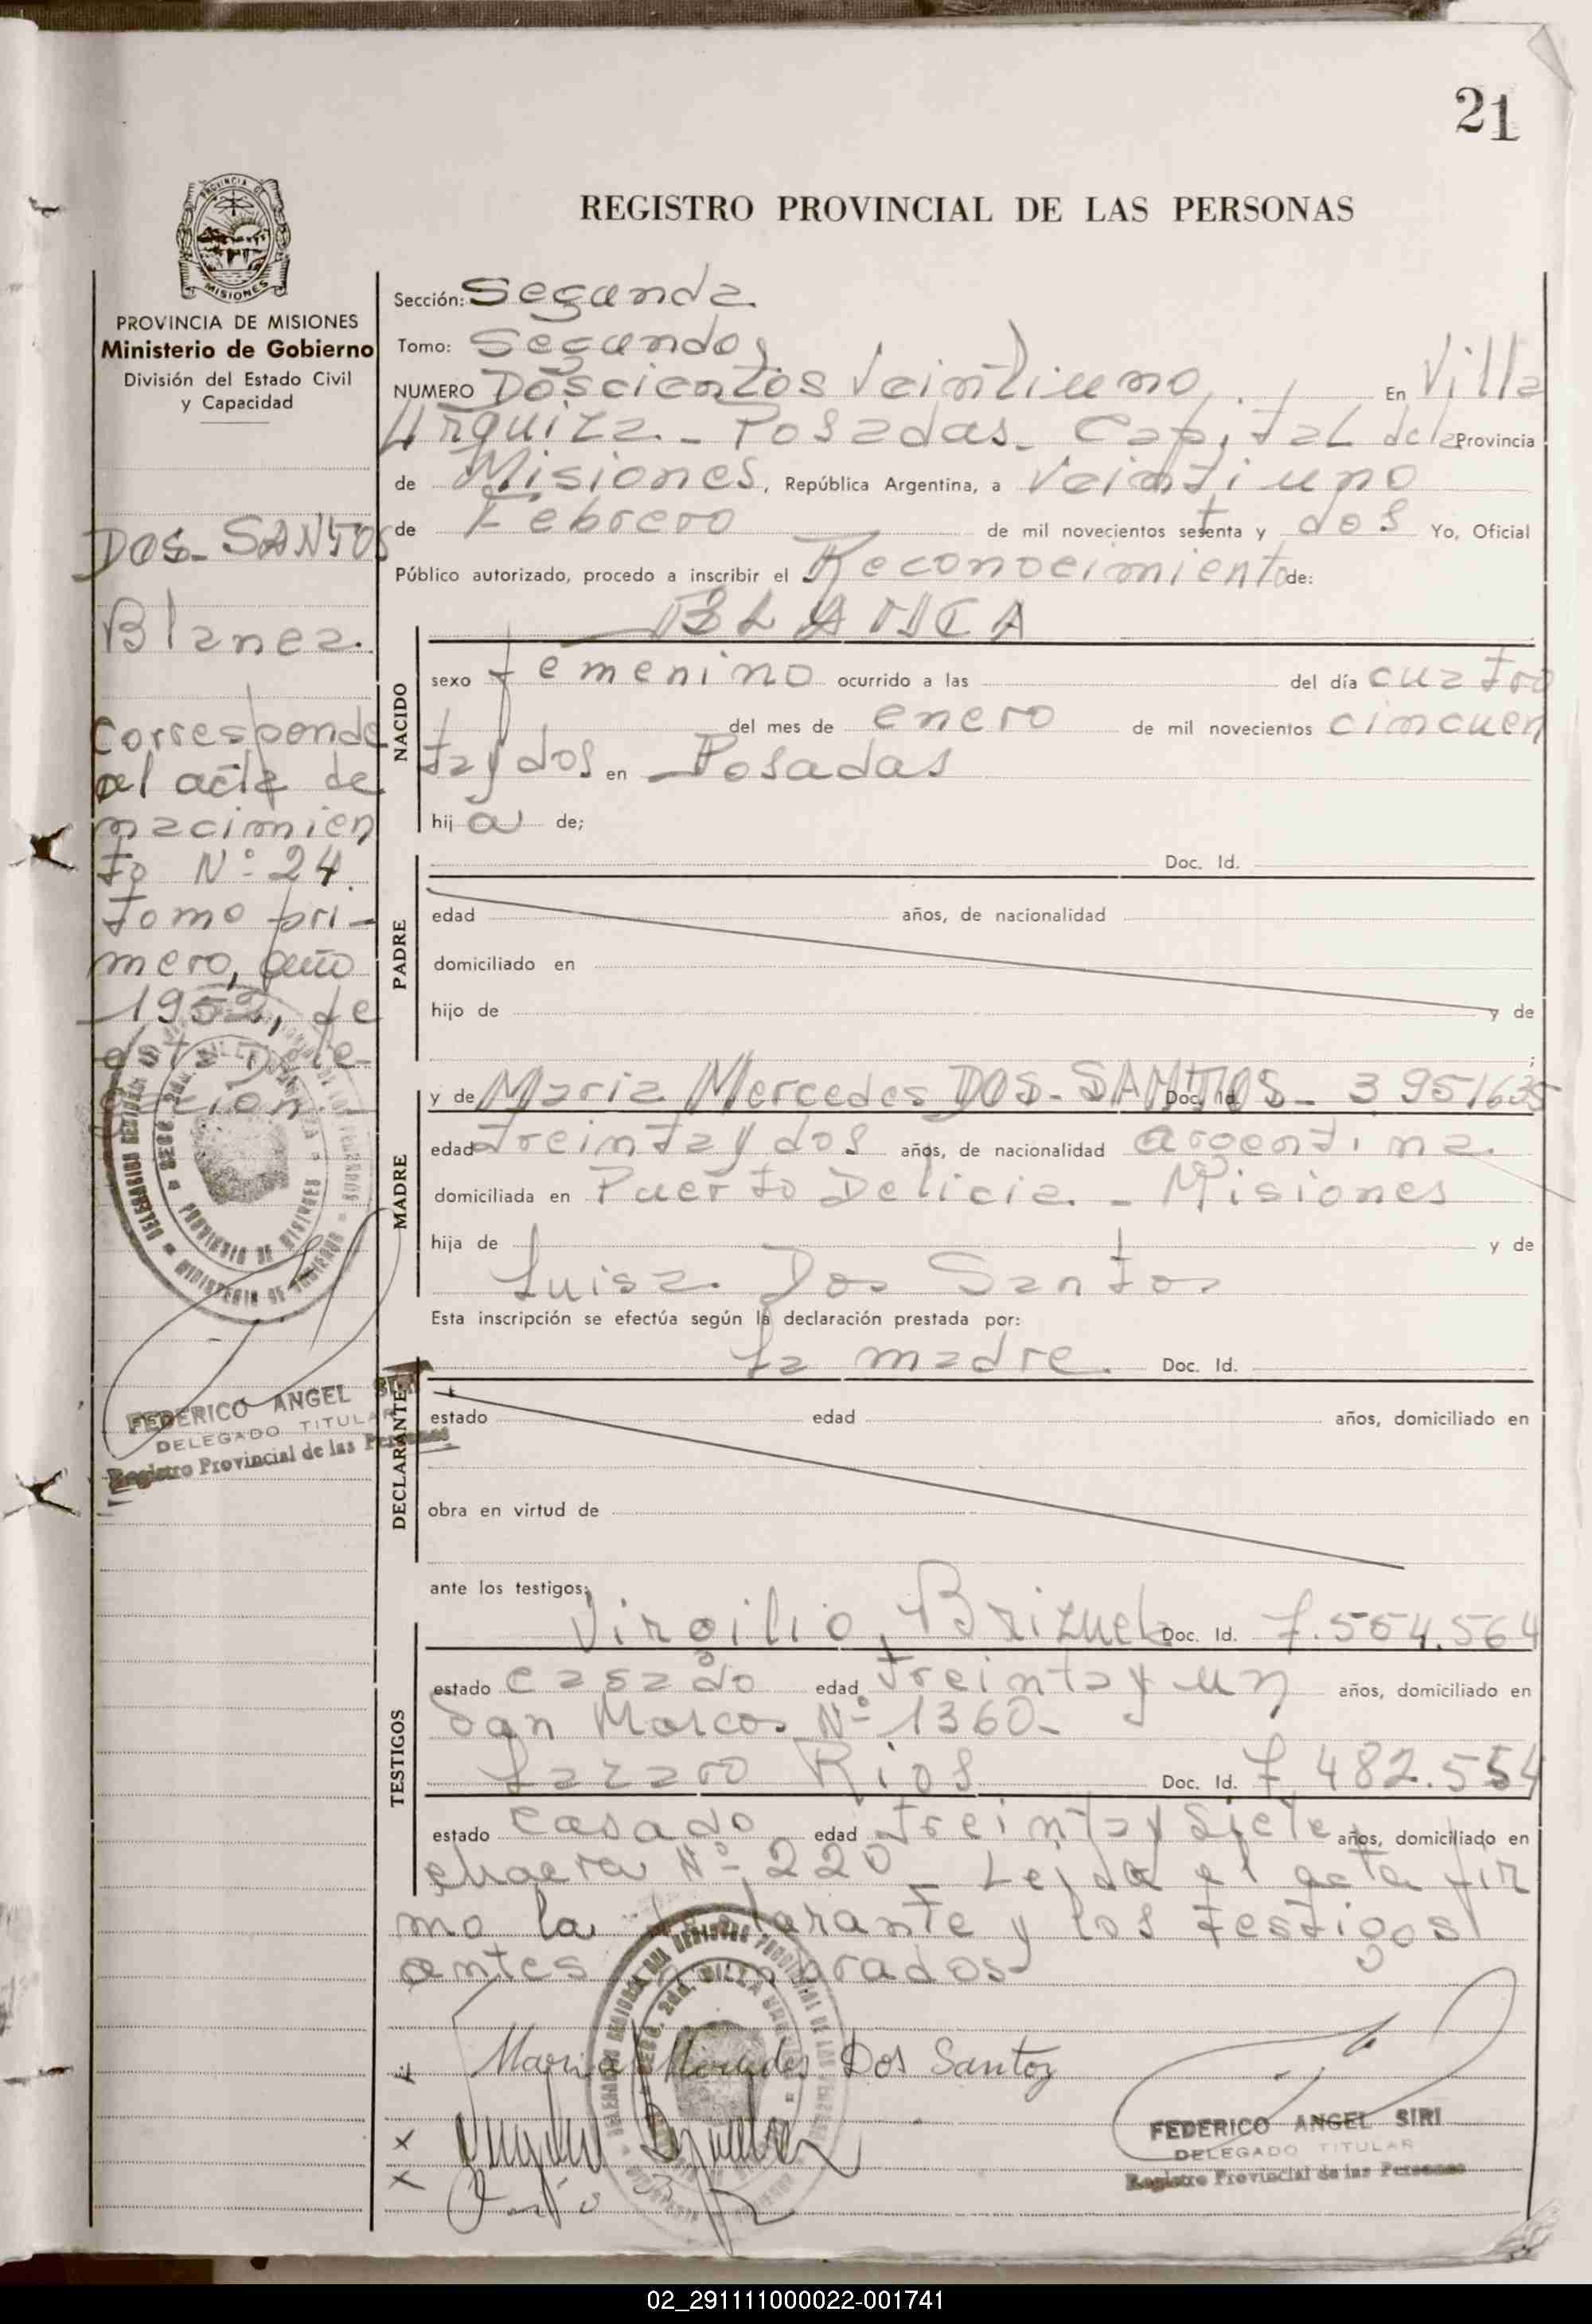 21
REGISTRO PROVINCIAL DE LAS PERSONAS
PROVINCIA DE MISIONES
Ministerio de Gobierno
División del Estado Civil
y Capacidad
DOS-SANTOS
Blanca.
Corresponde
al acta de
nacimien
to Nº 24.
tomo pri-
mero, año
1952, de
FEDERICO ANGEL SIRI
DELEGADO TITULAR
Registro Provincial de las Personas
Sección: Segunda
Tomo: Segundo
NUMERO Doscientos Veintiuno. En Villa
Urquiza - Posadas - Capital de la Provincia
de Misiones, República Argentina, a Veintiuno
de Febrero de mil novecientos setenta y dos Yo, Oficial
Público autorizado, procedo a inscribir el Reconocimiento de:
BLANCA
NACIDO
sexo femenino ocurrido a las del día cuatro
del mes de enero de mil novecientos cincuen
ta y dos en Posadas
hij a de;
PADRE
Doc. Id.
edad años, de nacionalidad
domiciliado en
hijo de y de
;
MADRE
y de Maria Mercedes DOS-SANTOS - Doc. Id. 3951635
edad treinta y dos años, de nacionalidad argentina
domiciliada en Puerto Delicia - Misiones
hija de y de
Luisa Dos Santos
Esta inscripción se efectúa según la declaración prestada por:
DECLARANTE
La madre. Doc. Id.
estado edad años, domiciliado en
obra en virtud de
ante los testigos:
TESTIGOS
Virgilio Brizuela Doc. Id. 7.554.564
estado casado edad treinta y un años, domiciliado en
San Marcos Nº 1360-
Lazaro Rios Doc. Id. 7.482.554
estado casado edad treinta y siete años, domiciliado en
chacra Nº 220 - Leida el acta fir
mo la declarante y los testigos
antes nombrados
Maria Mercedes Dos Santos
FEDERICO ANGEL SIRI
DELEGADO TITULAR
Registro Provincial de las Personas
02_291111000022-001741